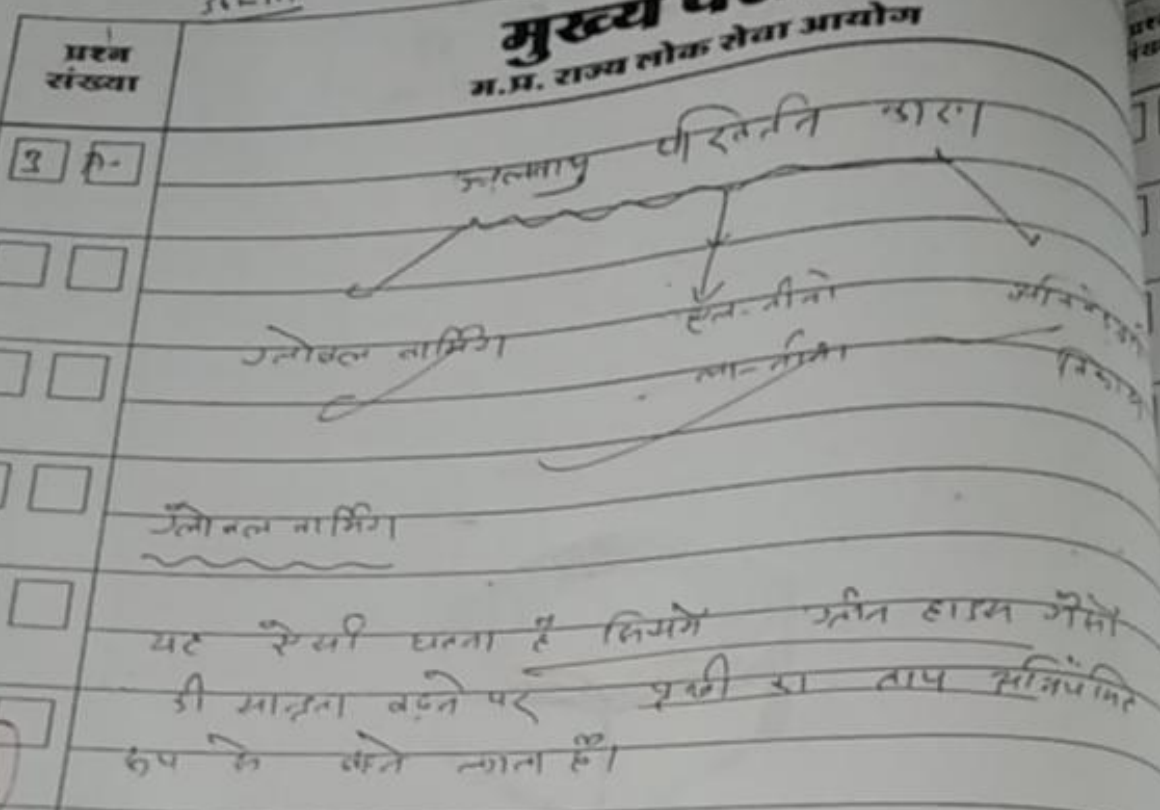 प्रश्न
संख्या
मुख्य
म.प्र. राज्य लोक सेवा आयोग
3
जलवायु परिवर्तन कारण
ग्लोबल वार्मिंग
एल-नीनो
ला-नीना
ग्लोबल वार्मिंग
यह ऐसी घटना है जिसमें ग्रीन हाउस गैसों
की सान्द्रता बढ़ने पर पृथ्वी का ताप अनियंमित
रूप से बढ़ने लगता है।